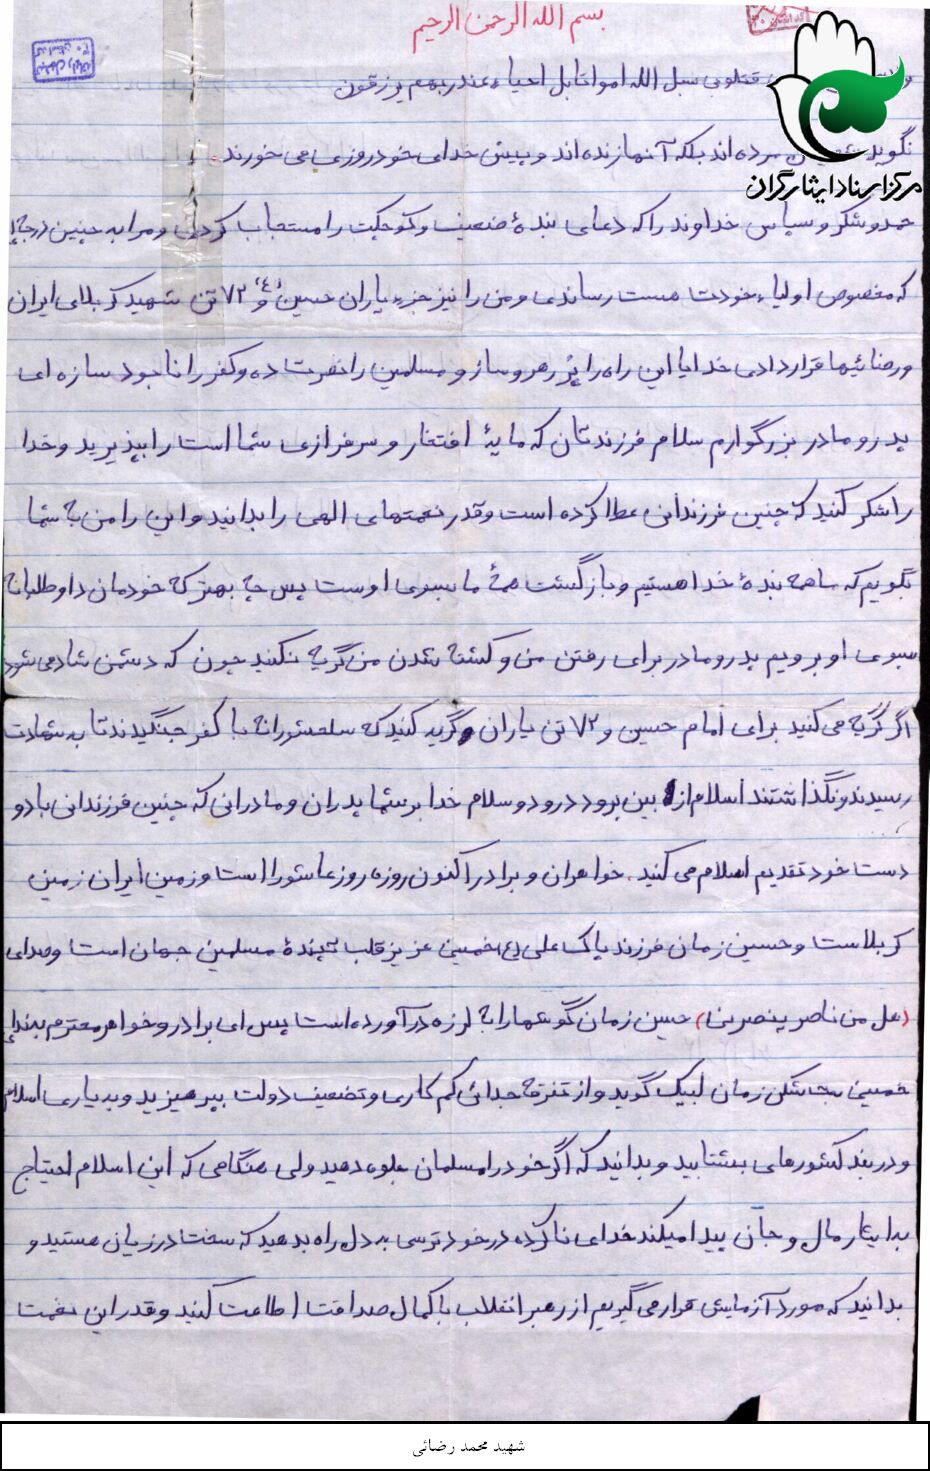 بسم الله الرحمن الرحیم
قتلوفی سبل الله امواتا بل احیاء عند ربهم یرزقون
مرکز اسناد ایثارگران
نگویید مرده اند بلکه آنها زنده اند و پیش خدای خود روزی می خورند.
حمد و شکر و سپاس خداوند را که دعای بندهٔ ضعیف و کوچکت را مستجاب کردی و مرا به چنین درجه‌ای
که مخصوص اولیاء خودت هست رساندی و من را نیز جزء یاران حسین (ع) و ۷۲ تن شهید کربلای ایران
ورضائیها قرار دادی خدایا این راه را پر رهرو ساز و مسلمین را نصرت ده و کفر را نابود سازه ای
پدر و مادر بزرگوارم سلام فرزندتان که مایهٔ افتخار و سرفرازی شما است را بپذیرید و خدا
را شکر کنید که چنین فرزندانی عطا کرده است و قدر نعمتهای الهی را بدانید و این را من به شما
بگویم که ما همه بندهٔ خدا هستیم و بازگشت همهٔ ما بسوی اوست پس چه بهتر که خودمان داوطلبانه
بسوی او برویم پدر و مادر برای رفتن من و کشته شدن من گریه نکنید چون که دشمن شاد می شود
اگر گریه می کنید برای امام حسین و ۷۲ تن یاران گریه کنید که سلحشورانه با کفر جنگیدند تا به شهادت
رسیدند و نگذاشتند اسلام از بین برود درود و سلام خدا بر شما پدران و مادرانی که چنین فرزندانی با دو
دست خود تقدیم اسلام می کنید. خواهران و برادر اکنون روزه روز عاشورا است و زمین ایران زمین
کربلاست و حسین زمان فرزند پاک علی (ع) خمینی عزیز قلب تپندهٔ مسلمین جهان است و صدای
(هل من ناصر ینصرنی) حسین زمان گوشها را به لرزه در آورده است پس ای برادر و خواهر محترم به ندای
خمینی بت شکن زمان لبیک گوید و از تفرقه جدائی کم کاری و تضعیف دولت بپرهیزید و به یاری اسلام
و در بند کشورهای بشتابید و بدانید که اگر خود را مسلمان جلوه دهید ولی هنگامی که این اسلام احتیاج
به ایثار مال و جان پیدا میکند خدای ناکرده در خود ترسی به دل راه بدهید که سخت در زیان هستید و
بدانید که مورد آزمایش قرار می گیریم از رهبر انقلاب با کمال صداقت اطاعت کنید و قدر این نعمت
شهید محمد رضائی